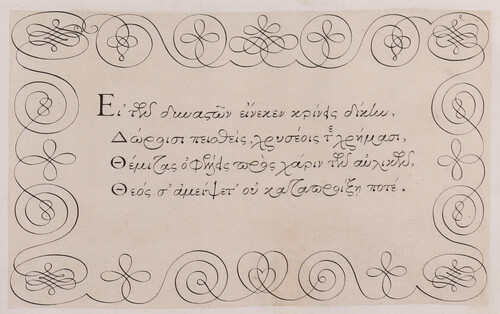 Εἰ τὴν δυναστῶν εἵνεκεν κρίνεις δίκην,
Δώροισι πεισθεὶς, χρυσέοις τε χρήμασι,
Θέμιστας πρὸς χάριν τὴν αὐλικὴν,
Θεός σ' ἀμείψετ' οὐ καταπροίξῃ ποτέ.